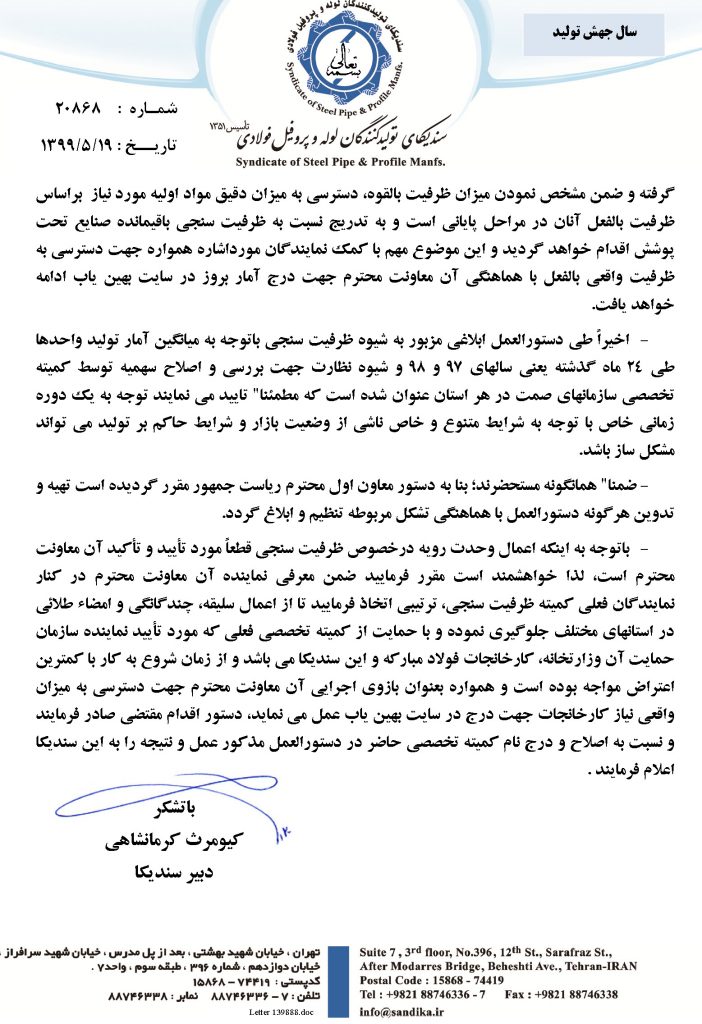 سال جهش تولید
سندیکای تولیدکنندگان لوله و پروفیل فولادی
بسمه تعالی
Syndicate of Steel Pipe & Profile Manfs.
شماره : ۲۰۸۶۸
تاریخ : ۱۳۹۹/۵/۱۹
سندیکای تولیدکنندگان لوله و پروفیل فولادی تأسیس ۱۳۵۱
Syndicate of Steel Pipe & Profile Manfs.
گرفته و ضمن مشخص نمودن میزان ظرفیت بالقوه، دسترسی به میزان دقیق مواد اولیه مورد نیاز براساس
ظرفیت بالفعل آنان در مراحل پایانی است و به تدریج نسبت به ظرفیت سنجی باقیمانده صنایع تحت
پوشش اقدام خواهد گردید و این موضوع مهم با کمک نمایندگان مورداشاره همواره جهت دسترسی به
ظرفیت واقعی بالفعل با هماهنگی آن معاونت محترم جهت درج آمار بروز در سایت بهین یاب ادامه
خواهد یافت.
- اخیراً طی دستورالعمل ابلاغی مزبور به شیوه ظرفیت سنجی باتوجه به میانگین آمار تولید واحدها
طی ۲۴ ماه گذشته یعنی سالهای ۹۷ و ۹۸ و شیوه نظارت جهت بررسی و اصلاح سهمیه توسط کمیته
تخصصی سازمانهای صمت در هر استان عنوان شده است که مطمئنا" تایید می نمایند توجه به یک دوره
زمانی خاص با توجه به شرایط متنوع و خاص ناشی از وضعیت بازار و شرایط حاکم بر تولید می تواند
مشکل ساز باشد.
- ضمنا" همانگونه مستحضرند؛ بنا به دستور معاون اول محترم ریاست جمهور مقرر گردیده است تهیه و
تدوین هرگونه دستورالعمل با هماهنگی تشکل مربوطه تنظیم و ابلاغ گردد.
- باتوجه به اینکه اعمال وحدت رویه درخصوص ظرفیت سنجی قطعاً مورد تأیید و تأکید آن معاونت
محترم است، لذا خواهشمند است مقرر فرمایید ضمن معرفی نماینده آن معاونت محترم در کنار
نمایندگان فعلی کمیته ظرفیت سنجی، ترتیبی اتخاذ فرمایید تا از اعمال سلیقه، چندگانگی و امضاء طلائی
در استانهای مختلف جلوگیری نموده و با حمایت از کمیته تخصصی فعلی که مورد تأیید نماینده سازمان
حمایت آن وزارتخانه، کارخانجات فولاد مبارکه و این سندیکا می باشد و از زمان شروع به کار با کمترین
اعتراض مواجه بوده است و همواره بعنوان بازوی اجرایی آن معاونت محترم جهت دسترسی به میزان
واقعی نیاز کارخانجات جهت درج در سایت بهین یاب عمل می نماید، دستور اقدام مقتضی صادر فرمایند
و نسبت به اصلاح و درج نام کمیته تخصصی حاضر در دستورالعمل مذکور عمل و نتیجه را به این سندیکا
اعلام فرمایند .
باتشکر
کیومرث کرمانشاهی
دبیر سندیکا
تهران ، خیابان شهید بهشتی ، بعد از پل مدرس ، خیابان شهید سرافراز ،
خیابان دوازدهم ، شماره ۳۹۶ ، طبقه سوم ، واحد۷ .
کدپستی : ۷۴۴۱۹ – ۱۵۸۶۸
تلفن : ۷ – ۸۸۷۴۶۳۳۶ نمابر : ۸۸۷۴۶۳۳۸
Letter 139888.doc
Suite 7 , 3rd floor, No.396, 12th St., Sarafraz St.,
After Modarres Bridge, Beheshti Ave., Tehran-IRAN
Postal Code : 15868 - 74419
Tel : +9821 88746336 - 7 Fax : +9821 88746338
info@sandika.ir